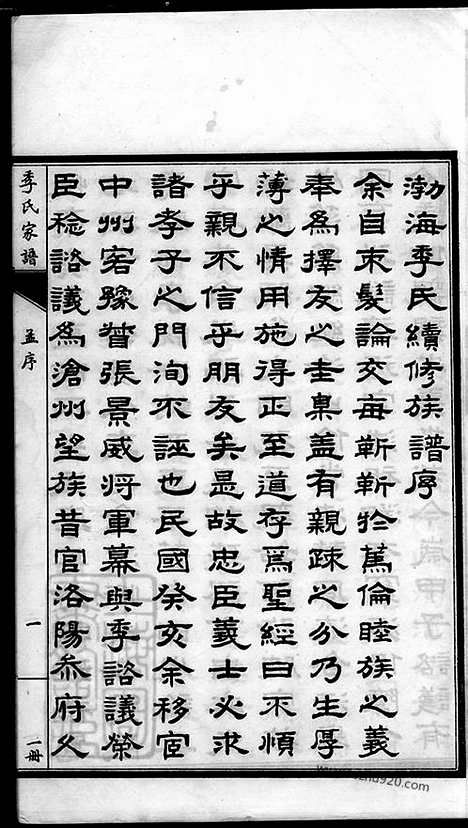 渤海季氏續修族譜序
余自束髮論交每靳靳於篤倫睦族之義
奉為擇友之圭臬蓋有親疎之分乃生厚
薄之情用施得正至道存焉聖經曰不順
乎親不信乎朋友矣是故忠臣義士必求
諸孝子之門洵不誣也民國癸亥余移宦
中州客豫督張景威將軍幕與季諮議榮
臣稔諮議為滄州望族昔官洛陽叅府久
季氏家譜
孟序
一
一冊